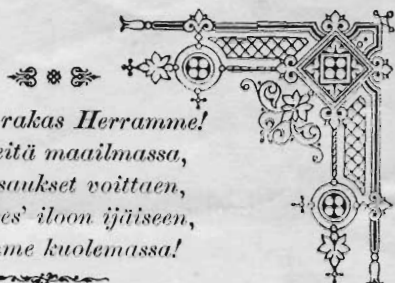 rakas Herramme!
eitä maailmassa,
saukset voittaen,
es' iloon ijäiseen,
me kuolemassa!